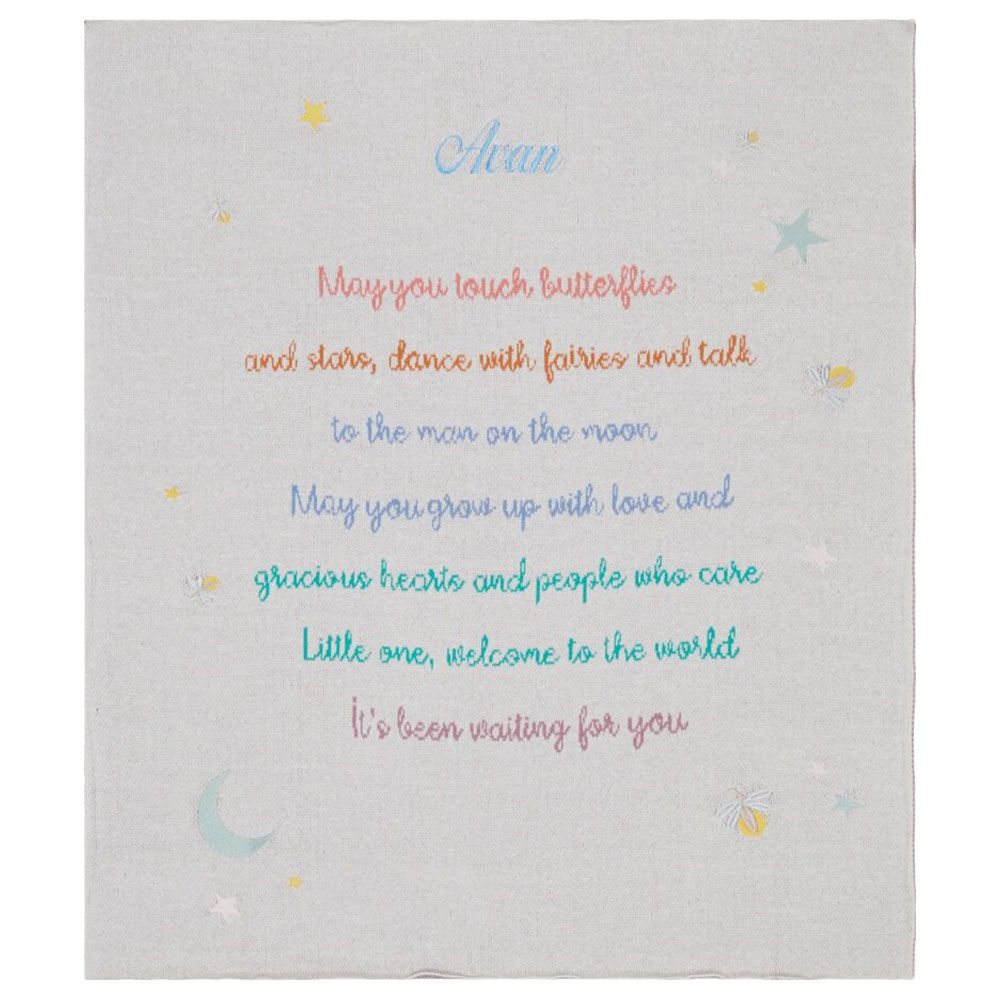 Avan
May you touch butterflies
and stars, dance with fairies and talk
to the man on the moon
May you grow up with love and
gracious hearts and people who care
Little one, welcome to the world
It's been waiting for you